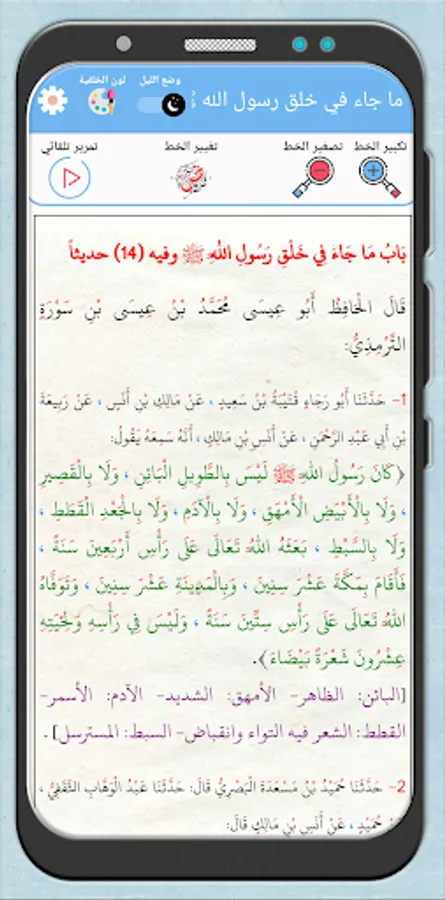 ما جاء في خلق رسول الله
وضع الليل
لون الخلفية
تكبير الخط
تصغير الخط
تغيير الخط
تمرير تلقائي
بَابُ مَا جَاءَ فِي خَلْقِ رَسُولِ اللهِ ﷺ وفيه (14) حديثاً
قَالَ الْحَافِظُ أَبُو عِيسَى مُحَمَّدُ بْنُ عِيسَى بْنِ سَوْرَةِ
التِّرْمِذِيُّ:
1- حَدَّثَنَا أَبُو رَجَاءٍ قُتَيْبَةُ بْنُ سَعِيدٍ ، عَنْ مَالِكِ بْنِ أَنَسٍ ، عَنْ رَبِيعَةَ
بْنِ أَبِي عَبْدِ الرَّحْمَنِ ، عَنْ أَنَسِ بْنِ مَالِكٍ ، أَنَّهُ سَمِعَهُ يَقُولُ:
﴿كَانَ رَسُولُ اللهِ ﷺ لَيْسَ بِالطَّوِيلِ الْبَائِنِ ، وَلَا بِالْقَصِيرِ
، وَلَا بِالْأَبْيَضِ الْأَمْهَقِ ، وَلَا بِالْآدَمِ ، وَلَا بِالْجَعْدِ الْقَطَطِ ،
وَلَا بِالسَّبْطِ ، بَعَثَهُ اللهُ تَعَالَى عَلَى رَأْسِ أَرْبَعِينَ سَنَةً ،
فَأَقَامَ بِمَكَّةَ عَشْرَ سِنِينَ ، وَبِالْمَدِينَةِ عَشْرَ سِنِينَ ، وَتَوَفَّاهُ
اللهُ تَعَالَى عَلَى رَأْسِ سِتِّينَ سَنَةً ، وَلَيْسَ فِي رَأْسِهِ وَلِحْيَتِهِ
عِشْرُونَ شَعْرَةً بَيْضَاءَ﴾.
[البائن: الظاهر- الأمهق: الشديد- الآدم: الأسمر-
القطط: الشعر فيه التواء وانقباض- السبط: المسترسل] .
2- حَدَّثَنَا حُمَيْدُ بْنُ مَسْعَدَةَ الْبَصْرِيُّ قَالَ: حَدَّثَنَا عَبْدُ الْوَهَّابِ الثَّقَفِيُّ ،
حُمَيْدٍ ، عَنْ أَنَسِ بْنِ مَالِكٍ قَالَ: